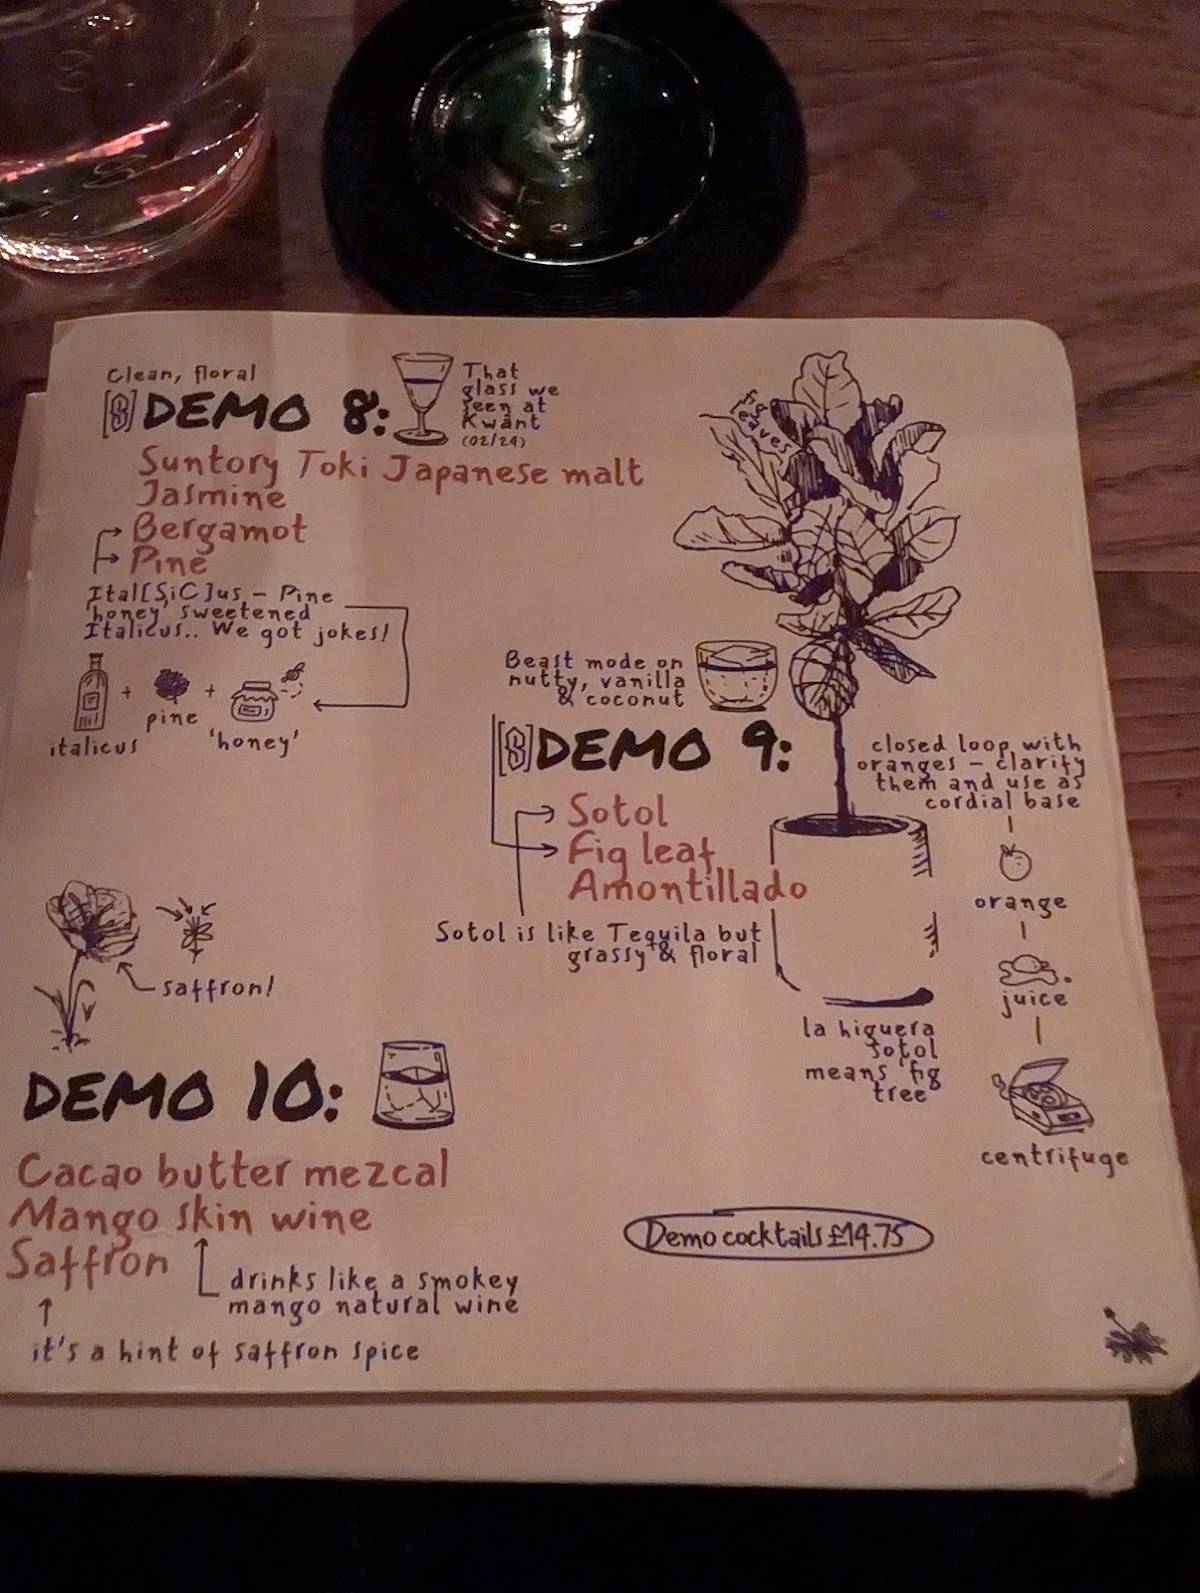 Clean, floral
[S] DEMO 8:
That
glass we
seen at
Kwānt
(02/24)
Suntory Toki Japanese malt
Jasmine
Bergamot
Pine
Ital[SiC]us – Pine
'honey' sweetened
Italicus.. We got jokes!
+
+
italicus
pine
'honey'
leaves
Beast mode on
nutty, vanilla
& coconut
[S] DEMO 9:
Sotol
Fig leaf
Amontillado
Sotol is like Tequila but
grassy & floral
closed loop with
oranges – clarify
them and use as
cordial base
orange
juice
centrifuge
la higuera
sotol
means 'fig
tree'
saffron!
DEMO 10:
Cacao butter mezcal
Mango skin wine
Saffron
drinks like a smokey
mango natural wine
it's a hint of saffron spice
Demo cocktails £14.75